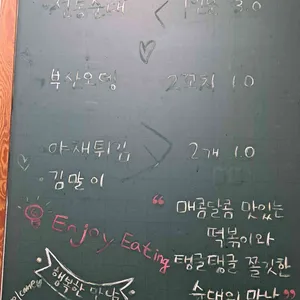 부산오뎅 2꼬치 1.0
야채튀김 > 2개 1.0
김말이
Enjoy Eating
“ 매콤달콤 맛있는
떡볶이와
탱글탱글 쫄깃한
순대의 만남 ”
welcome
행복한 만남